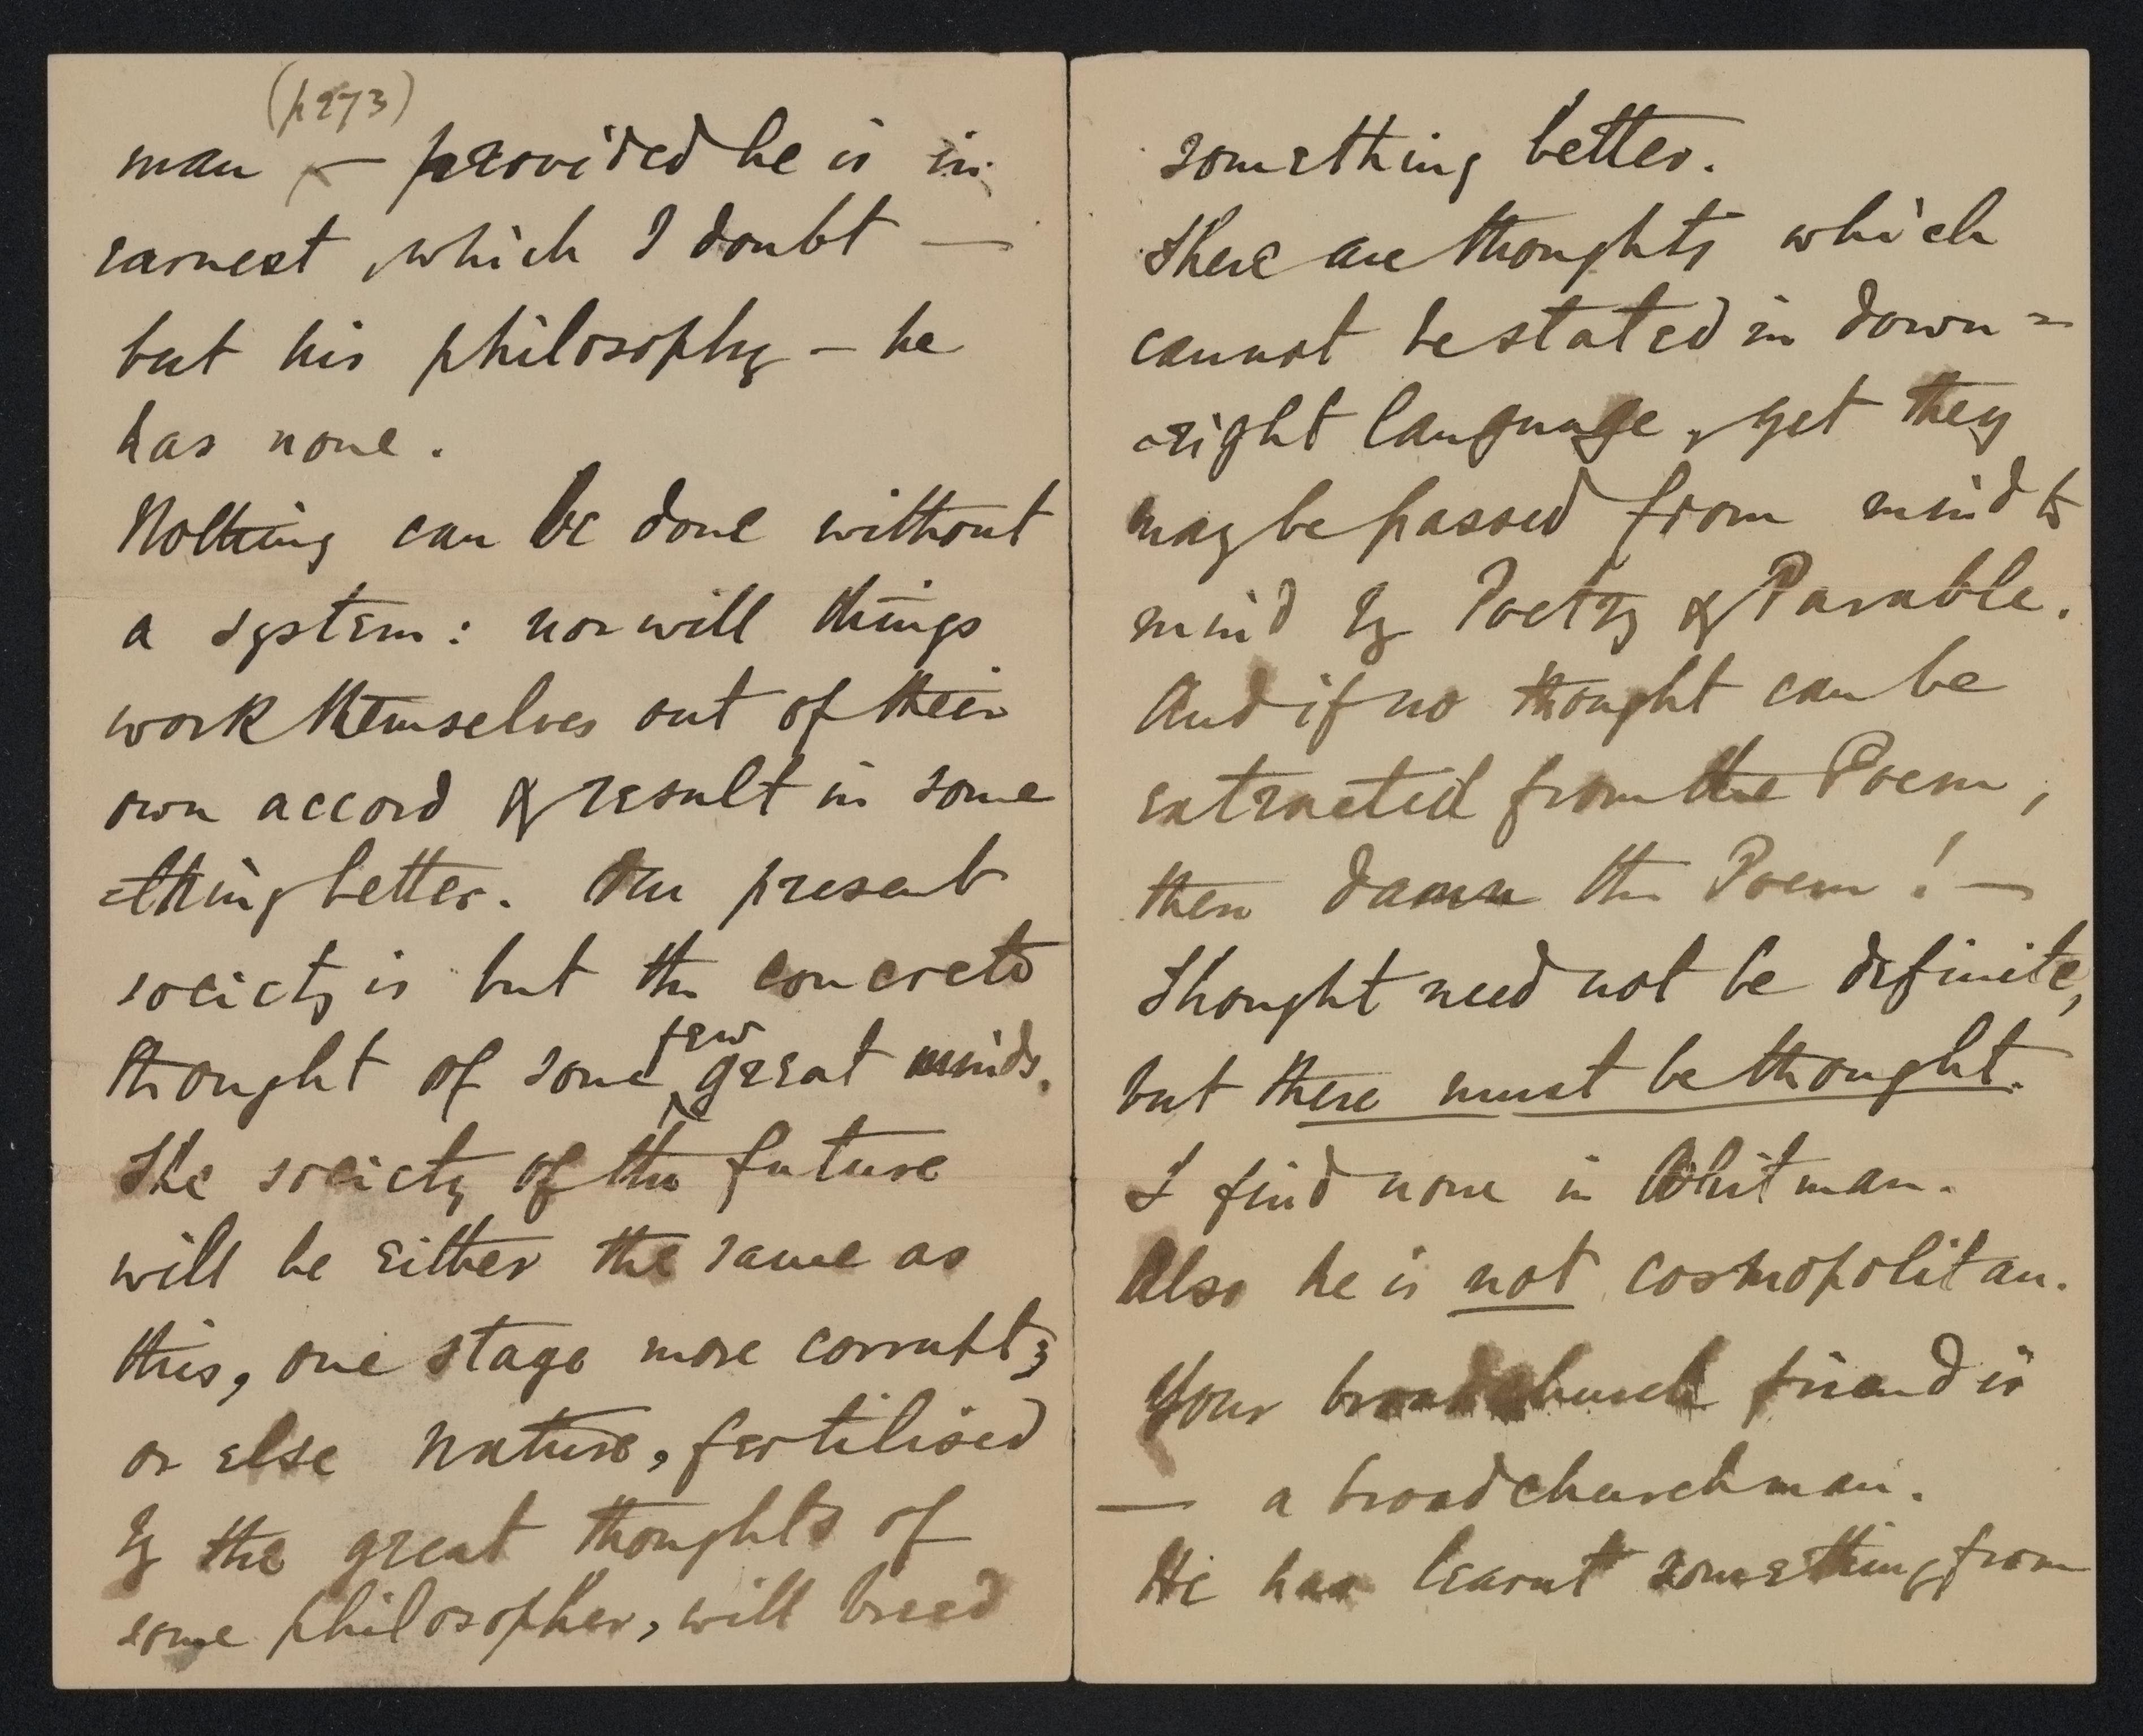 (p273)
man, — provided he is in
earnest, which I doubt —
but his philosophy — he
has none.
Nothing can be done without
a system: nor will things
work themselves out of their
own accord & result in some
=thing better. Our present
society is but the concrete
thought of some few great minds.
The society of the future
will be either the same as
this, one stage more corrupt;
or else Nature, fertilised
by the great thoughts of
some philosopher, will breed
something better.
There are thoughts which
cannot be stated in down=
=right language, yet they
may be passed from mind to
mind by Poetry & Parable.
And if no thought can be
extracted from the Poem,
then damn the Poem! —
Thought need not be definite,
but there must be thought.
I find none in Whitman.
Also he is not cosmopolitan.
Your broadchurch friend is
— a broadchurchman.
He has learnt something from